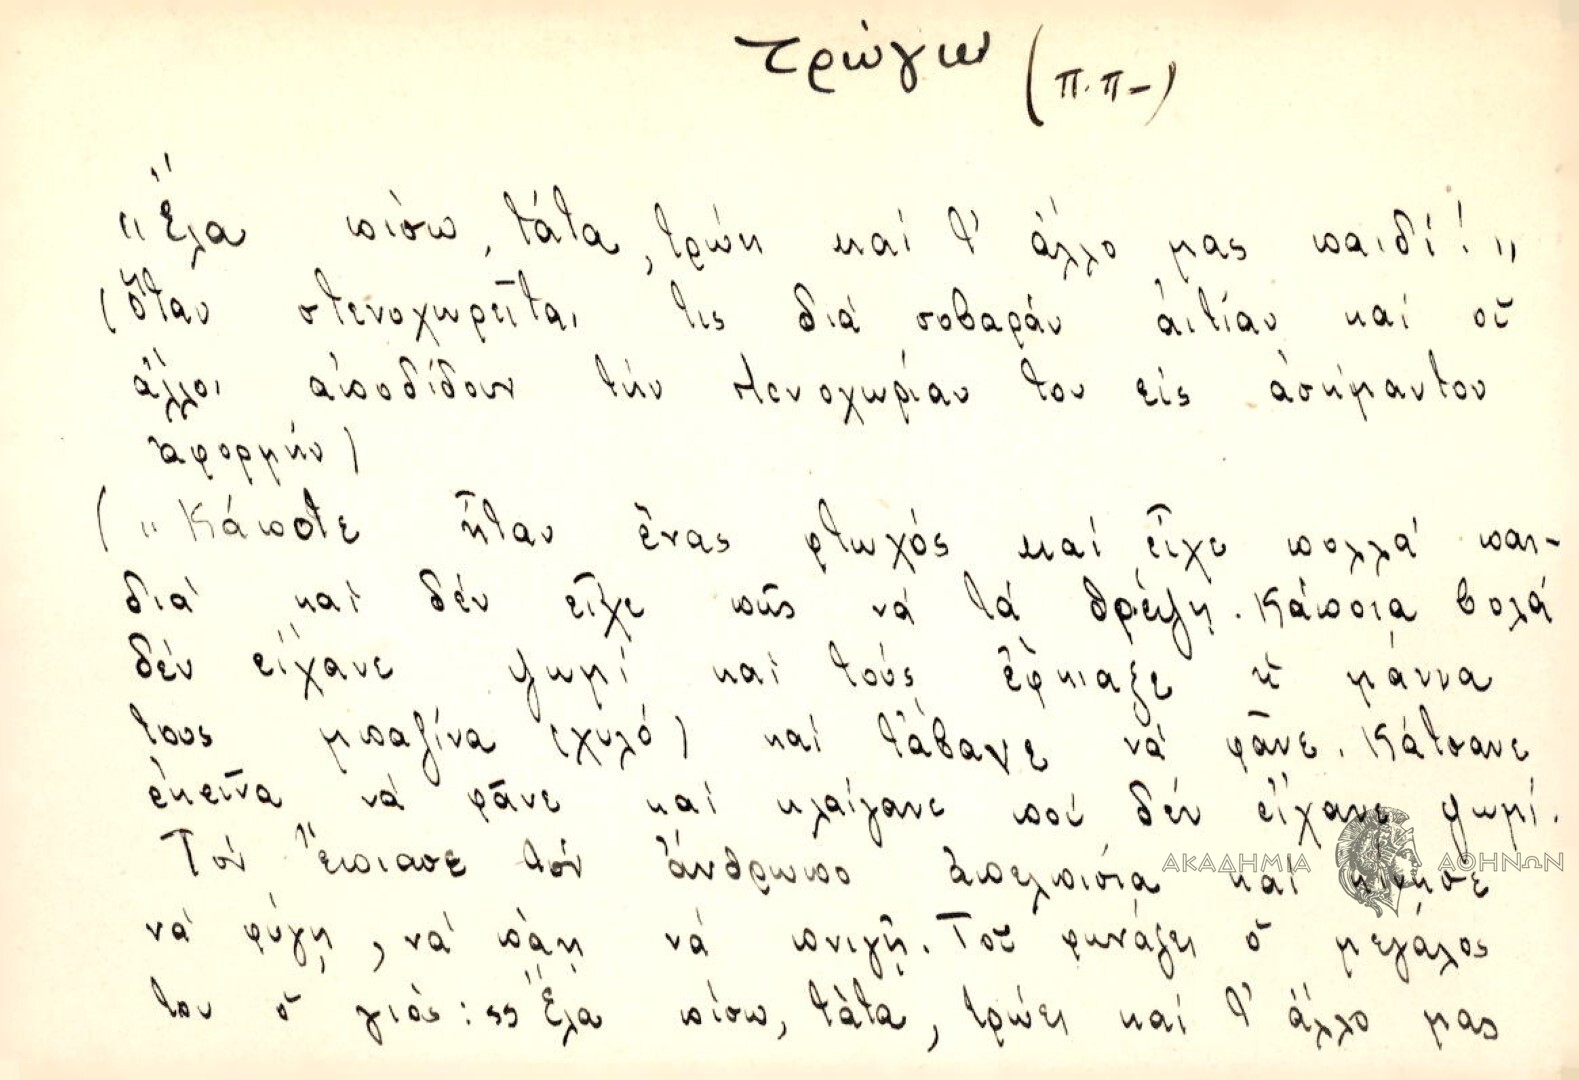 τρώγω (π.π-)
"Ἔλα πίσω, τάτα, τρώει καί τ' ἄλλο μας παιδί!"
(ὅταν στενοχωρεῖται τις διά σοβαράν αἰτίαν καί οἱ
ἄλλοι ἀποδίδουν τήν στενοχωρίαν του εἰς ἀσήμαντον
ἀφορμήν)
("Κάποτε ἦταν ἕνας φτωχός καί εἶχε πολλά παι-
διά καί δέν εἶχε πῶς νά τά θρέψη. Κάποια βολά
δέν εἴχανε ψωμί καί τούς ἔφκιαξε ἡ μάννα
τους μπαζίνα (χυλό) καί τἄβανε νά φᾶνε. Κάτσανε
ἐκεῖνα νά φᾶνε καί κλαίγανε πού δέν εἴχανε ψωμί.
Τόν ἔπιασε τόν ἄνθρωπο ἀπελπισία καί κίνησε
νά φύγη, νά πάη νά πνιγῆ. Τοῦ φωνάζει ὁ μεγάλος
του ὁ γιός: "Ἔλα πίσω, τάτα, τρώει καί τ' ἄλλο μας
ΑΚΑΔΗΜΙΑ ΑΘΗΝΩΝ